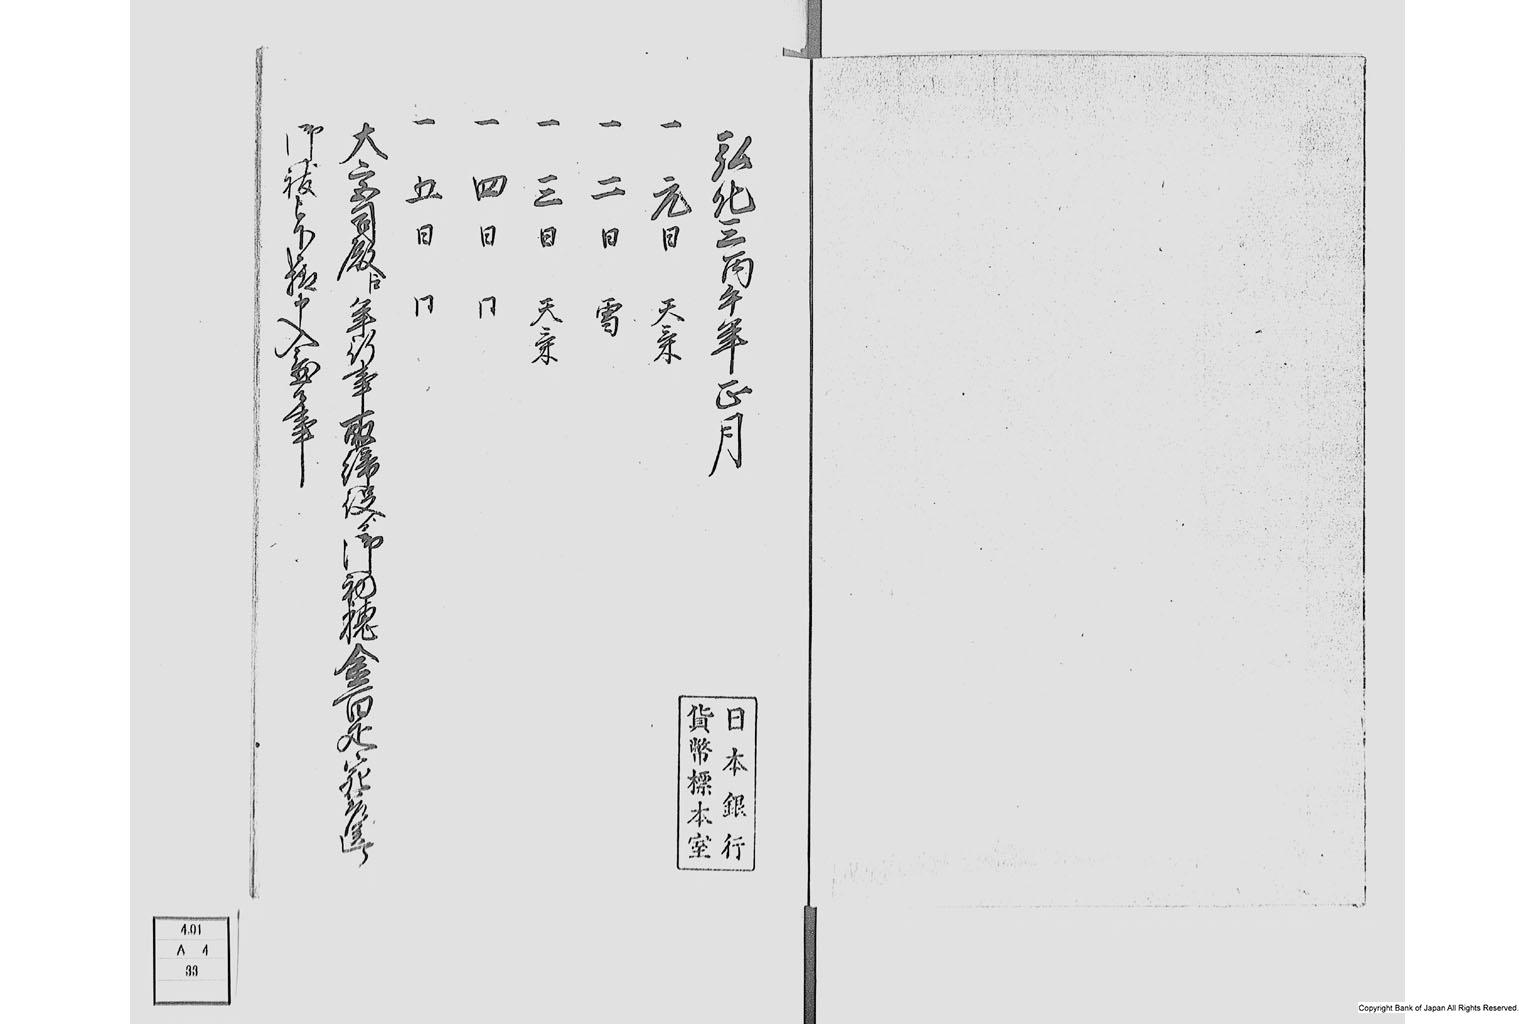 弘化三丙午年正月
一 元日 天気
一 二日 雪
一 三日 天気
一 四日 同
一 五日 同
大宮司殿 年行事取締役 御初穂金百疋
御祓
日本銀行
貨幣標本室
4.01
A 4
33
Copyright Bank of Japan All Rights Reserved.